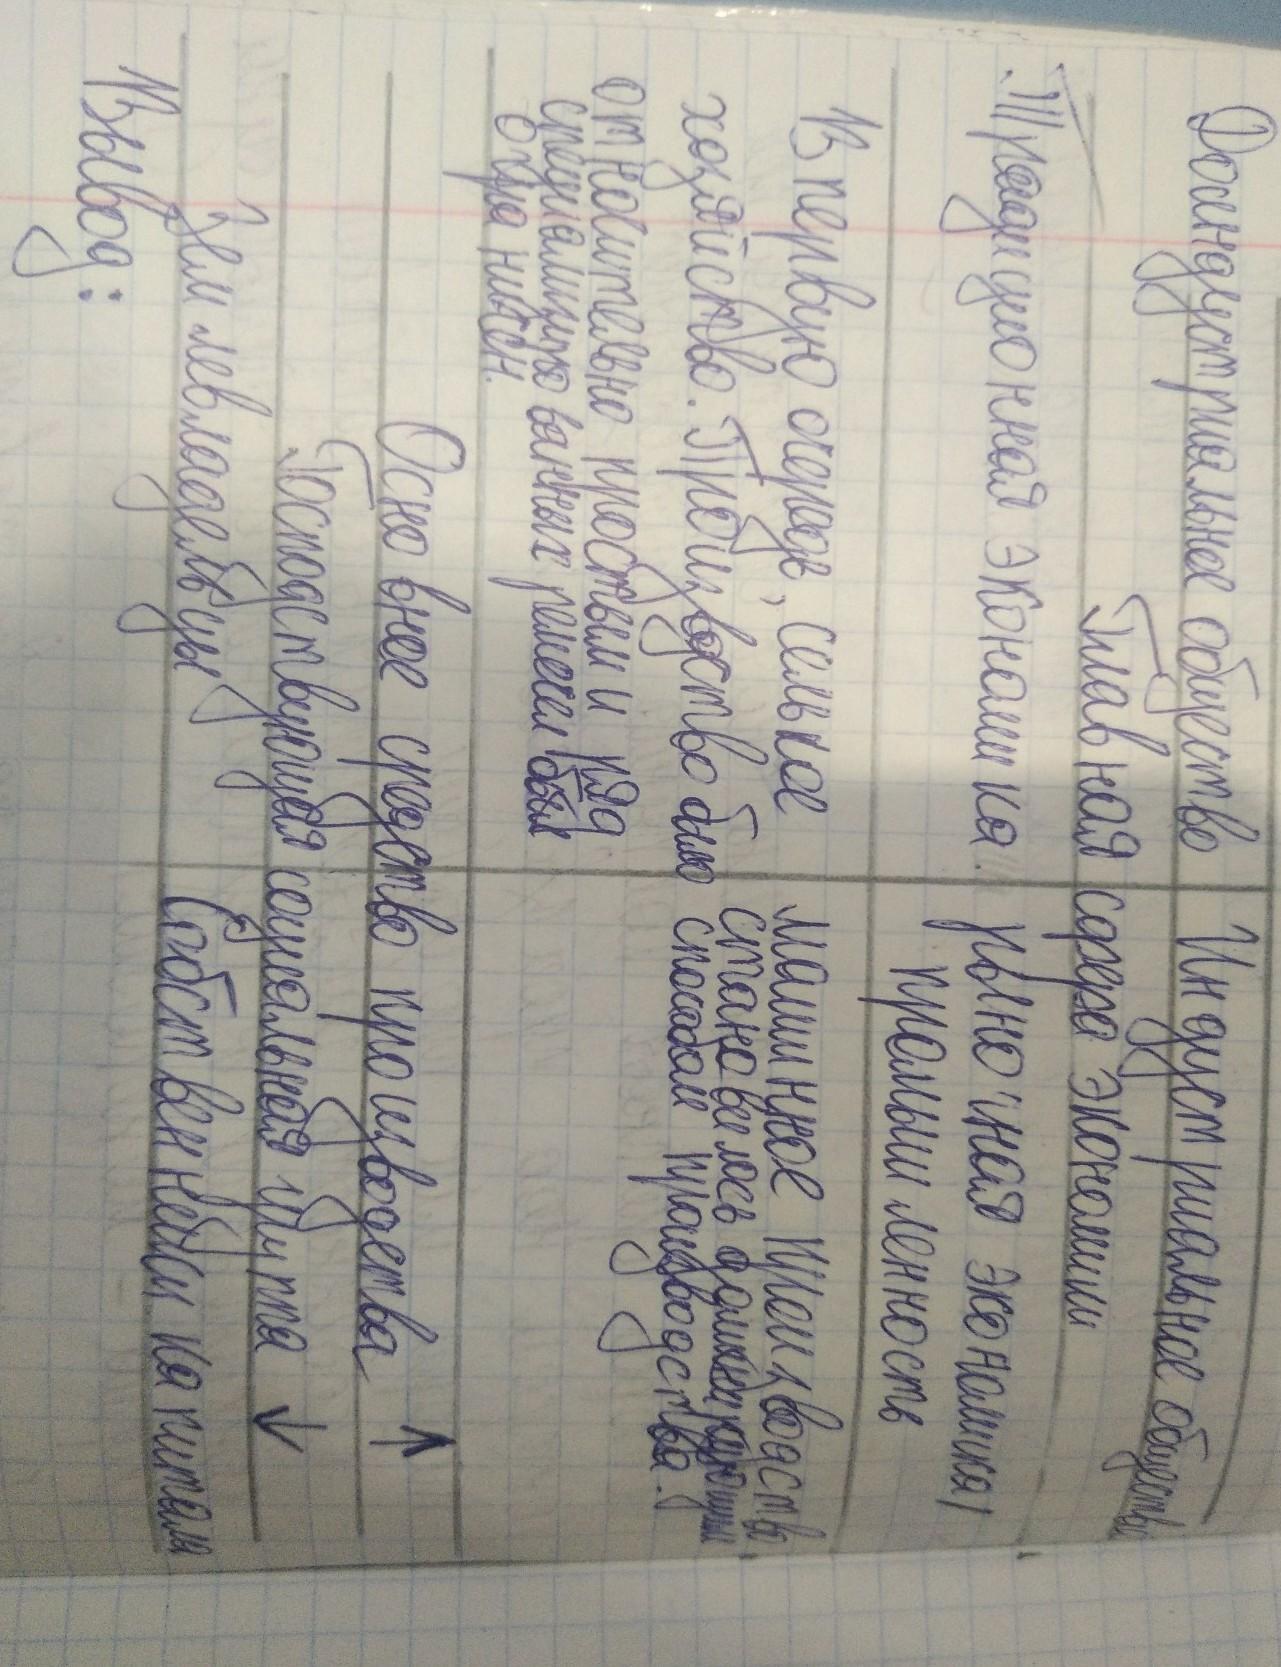 Доиндустриальнее общество
Индустриальное общество
Главная сфера экономики
Традиционная экономика.
рыночная экономика,
промышленность
В первую очередь, селькое
хозяйство. Производство было
относительно простым и ряд
специализированных ремесел был
огра нисен.
машинное производств
становелось доминирующим
способом производства.
Основнее средство производства ↑
Господствующая социальная группа ↓
Землевладельцы
Собственники капитала
Вывод: